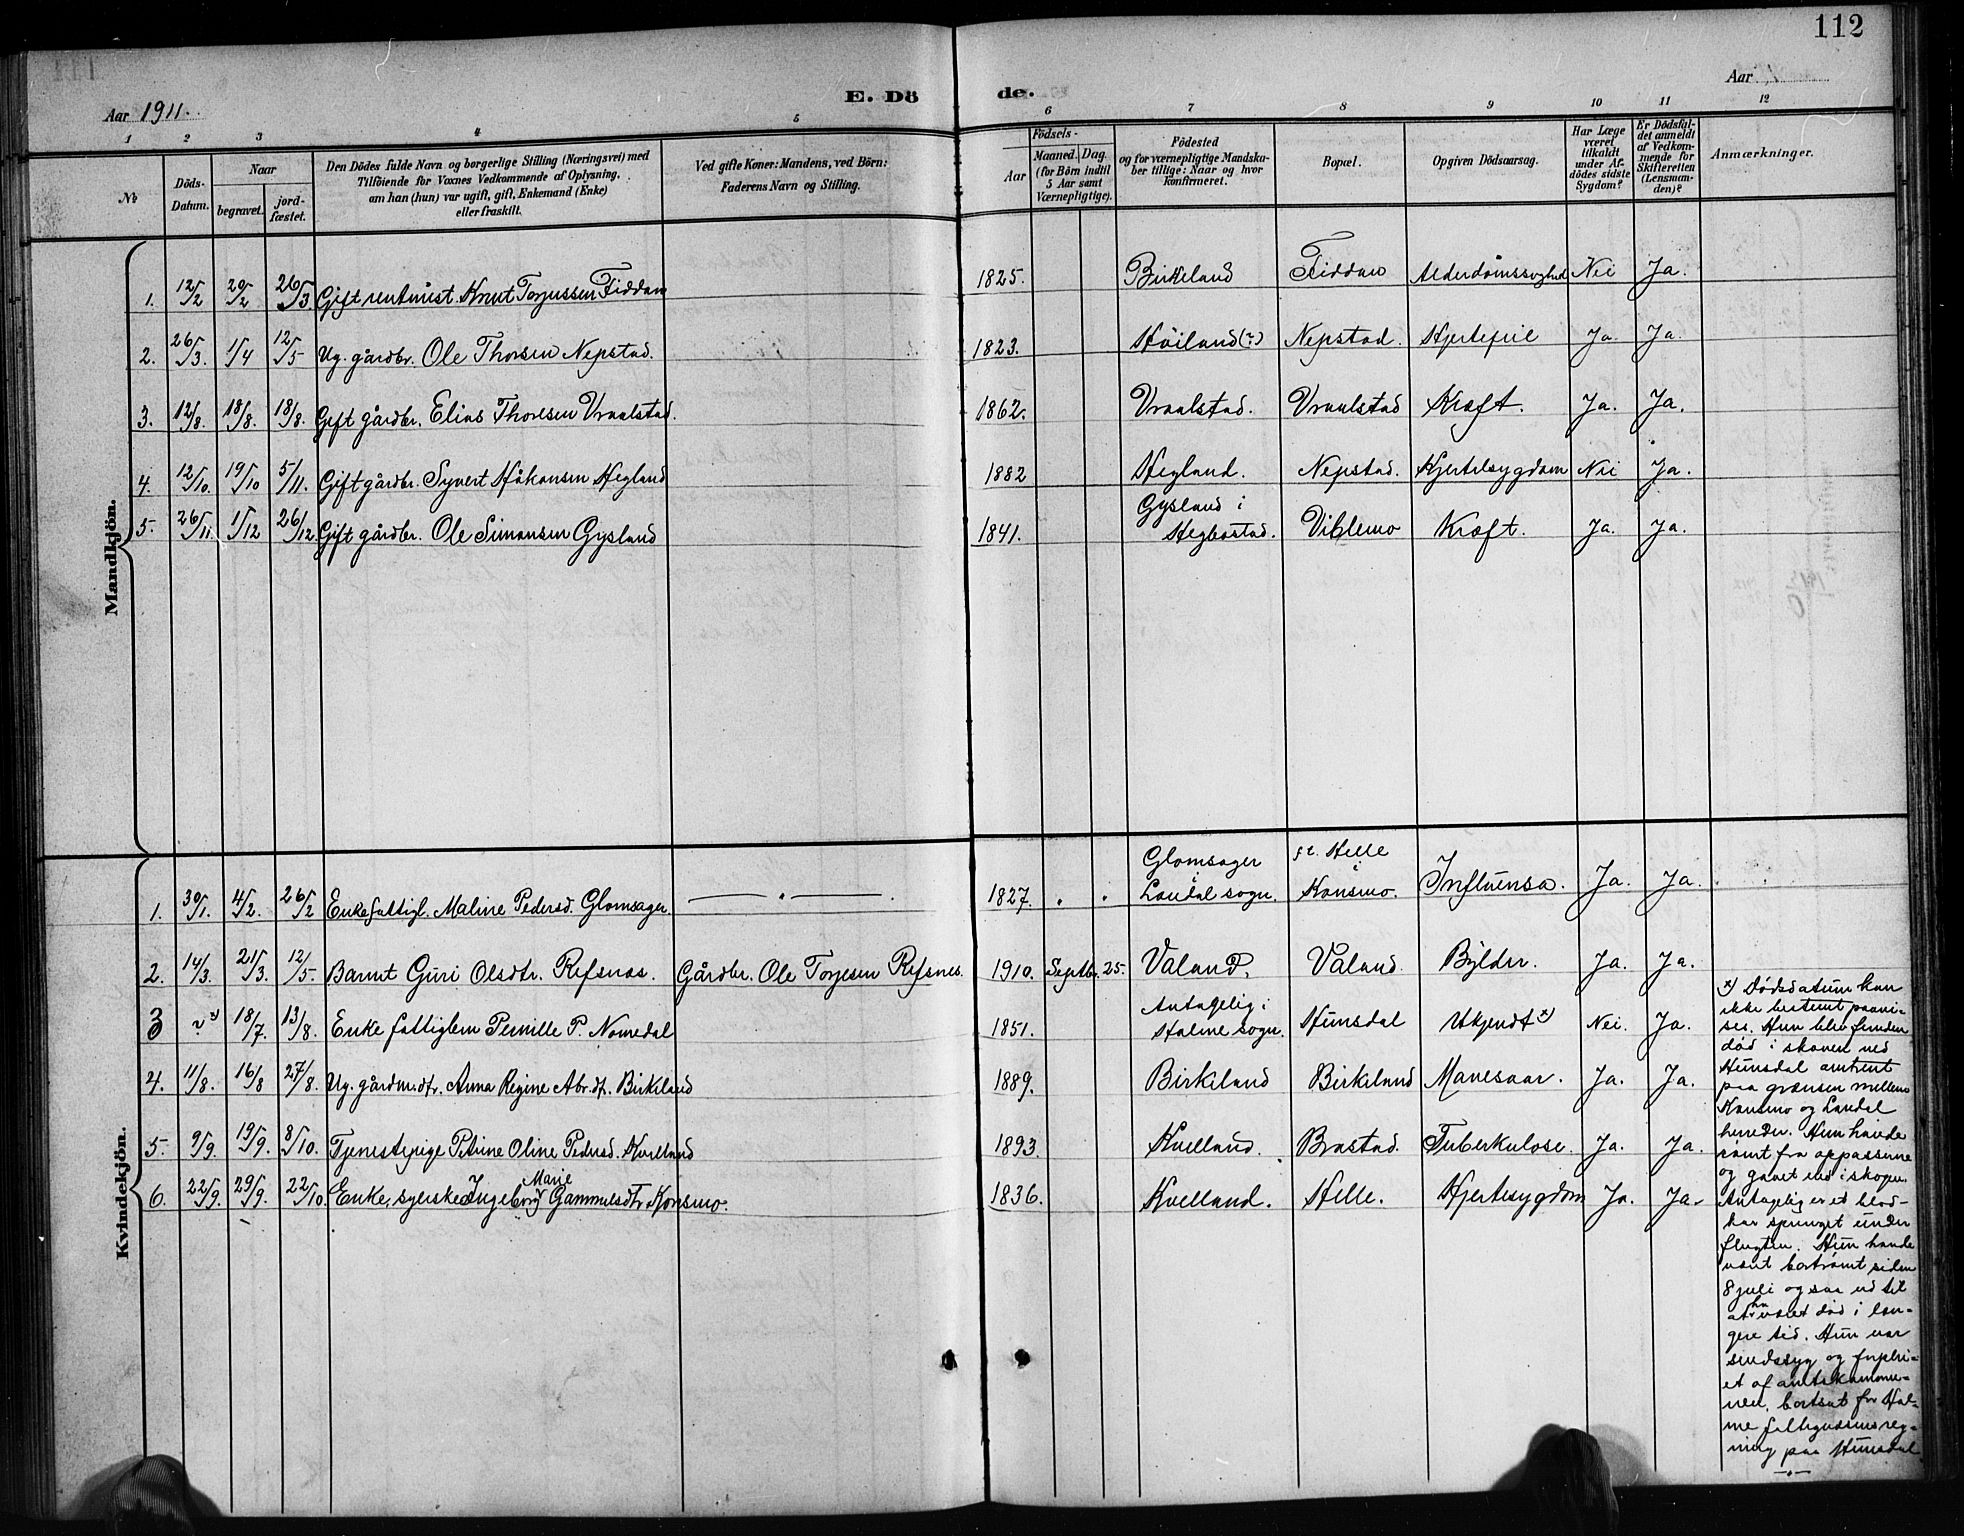 112
Aar 1911.
E. Dö de.
Aar
1 2 3 4 5 6 7 8 9 10 11 12
№
Döds-Datum.
Naar
begravet.
jord-fæstet.
Den Dödes fulde Navn og borgerlige Stilling (Næringsvei) med
Tilföiende for Voxnes Vedkommende af Oplysning,
om han (hun) var ugift, gift, Enkemand (Enke)
eller fraskilt.
Ved gifte Koner: Mandens, ved Börn:
Faderens Navn og Stilling.
Födsels-
Aar
Maaned. Dag.
(for Börn indtil
5 Aar samt
Værnepligtige).
Födested
og for værnepligtige Mandska-
ber tillige: Naar og hvor
konfirmeret.
Bopæl.
Opgiven Dödsaarsag.
Har Læge
været
tilkaldt
under Af-
dödes sidste
Sygdom?
Er Dödsfal-
det anmeldt
af Vedkom-
mende for
Skifteretten
(Lensman-
den)?
Anmærkninger.
Mandkjön.
1. 12/2 20/2 26/3 Gift rentenist Knut Torjussen Fiddan 1825. Birkeland Fiddan Alderdomssvaghed Nei Ja.
2. 26/3. 1/4 12/5 Ug. gårdbr. Ole Thorsen Nepstad. 1823. Høiland (?) Nepstad. Hjertefeil Ja. Ja.
3. 12/8. 18/8 18/8. Gift gårdbr. Elias Thoresen Vraalstad. 1862. Vraalstad. Vraalstad Kræft. Ja. Ja.
4. 12/10. 19/10 5/11. Gift gårdbr. Syvert Håkonsen Hegland 1882 Hegland. Nepstad. Hjertesygdom Nei Ja.
5. 26/11. 1/12 26/12 Gift gårdbr. Ole Simonsen Gysland 1841. Gysland i Hegbostad. Viblemo Kræft. Ja. Ja.
Kvindekjön.
1. 30/1. 4/2. 26/2 Enke fattigl. Maline Pedersd. Glomsager. — " — 1827. " " Glomsager i Laudal sogn. p.t. Helle i Konsmo. Influensa. Ja. Ja.
2. 14/3. 21/3. 12/5. Barnet Guri Olsdtr. Refsnes. Gårdbr. Ole Torjesen Refsnes. 1910. Septbr. 25. Valand. Valand. Bylder. Ja. Ja.
3 ? x) 18/7. 13/8. Enke fattiglem Pernille P. Nomedal 1851. Antagelig i Halme sogn. Hunsdal Ukjendt x) Nei. Ja.
4. 11/8. 16/8 27/8. Ug. gårdm. dtr. Anna Regine Abr. dt. Birkeland 1889. Birkeland Birkeland Mavesaar. Ja. Ja.
5. 9/9. 19/9. 8/10. Tjenestepige Petrine Oline Pedersd. Kvelland 1893. Kvelland. Brastad. Tuberkulose. Ja. Ja.
6. 22/9. 29/9. 22/10. Enke, syerske Ingeborg Marie Gammelsdtr. Konsmo. 1836. Kvelland. Helle. Hjertesygdom Ja. Ja.
x) Dødsdatum kan
ikke bestemt paavi-
ses. Hun blev funden
død i skoven ved
Hunsdal omtrent
paa grænsen mellem
Konsmo og Laudal
herreder. Hun havde
rømt fra oppasserne
og gaaet ud i skogen.
Antagelig er et blod-
kar sprunget under
flugten. Hun havde
været bortrømt siden
8 juli og saa ud til
at ha været død i læn-
gere tid. Hun var
sindssyg og forplei-
et af amtskommu-
nen, bortsat for Hal-
me fattigvæsens reg-
ning paa Hunsdal